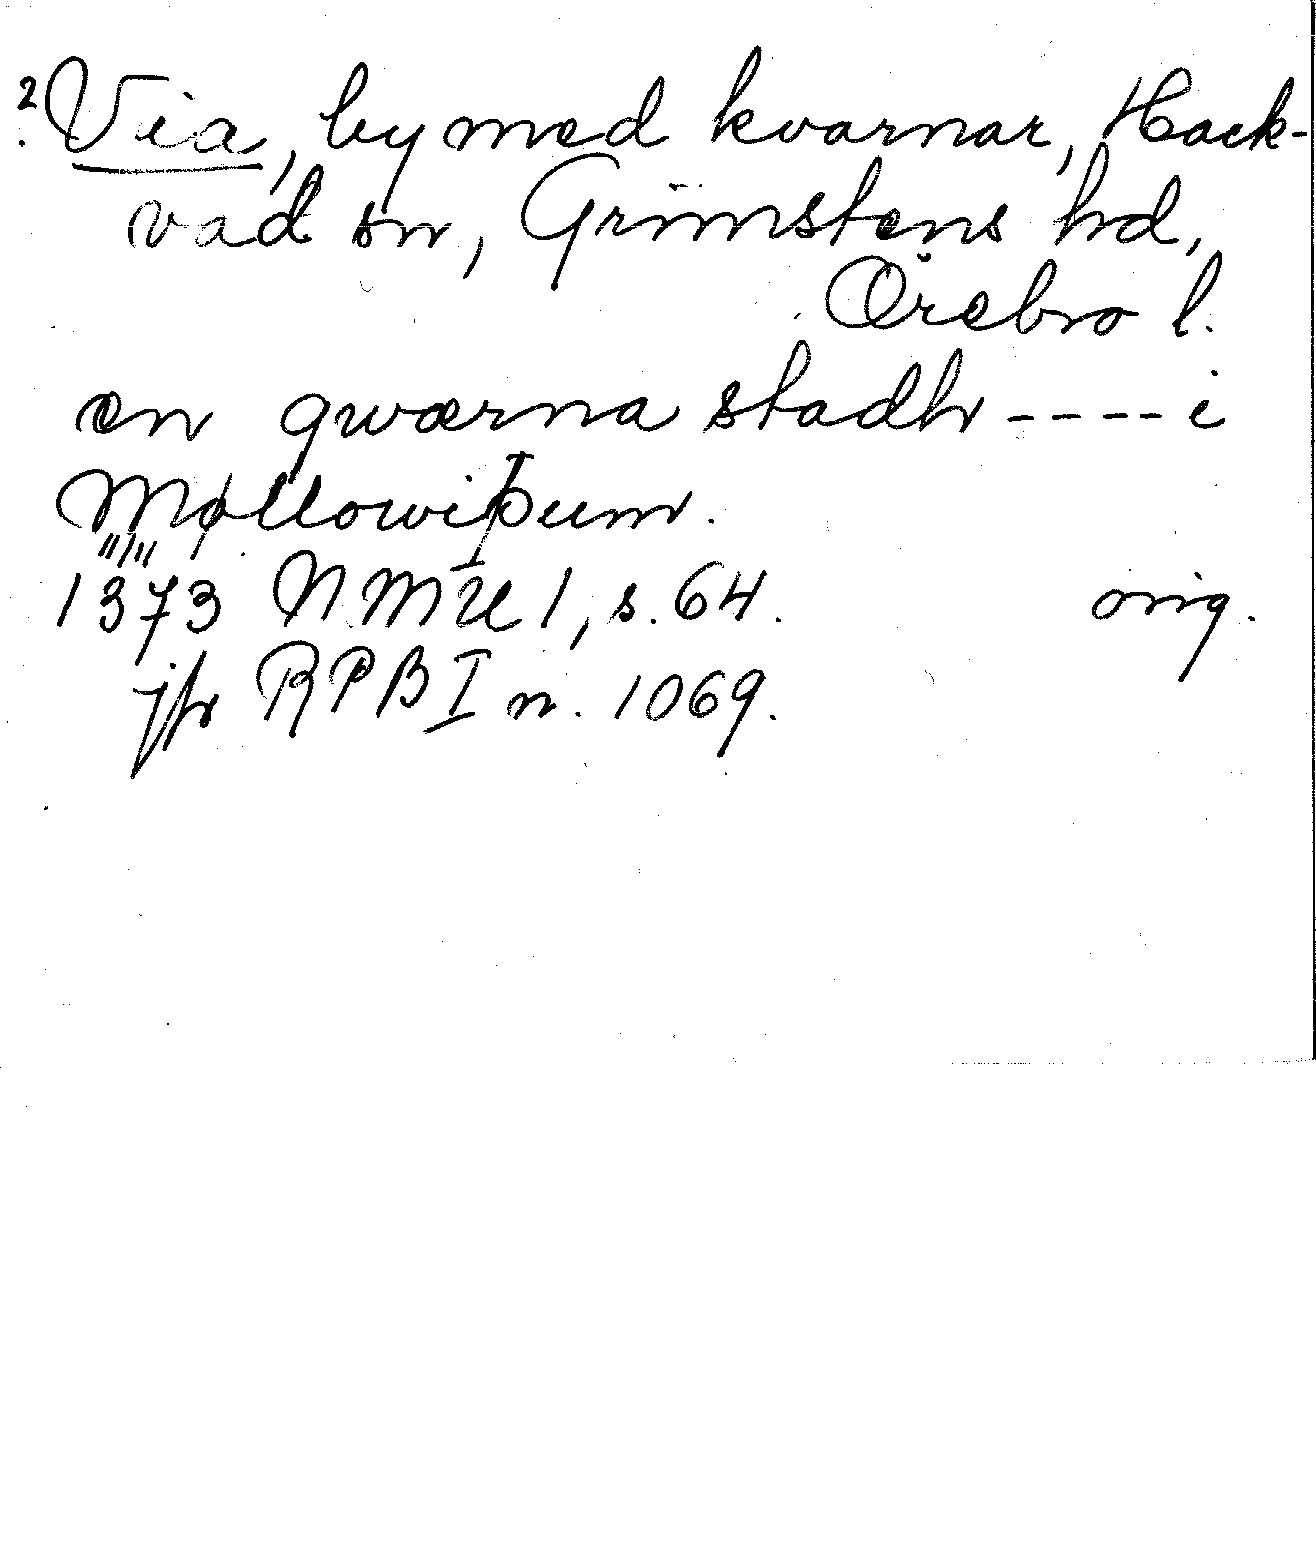 ? Via, by med kvarnar, Hack-
vad sn, Grimstens hd,
Örebro l.
en qwærna stadh ---- i
Møllowiþum.
1373 NMU 1, s. 64. orig.
jfr RPB I n. 1069.